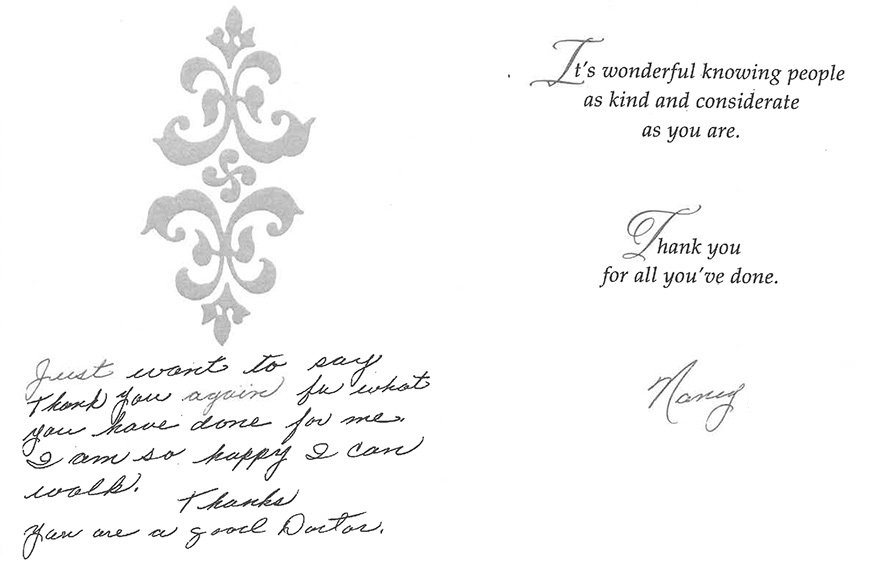 Just want to say
Thank you again for what
you have done for me.
I am so happy I can
walk.
Thanks
You are a good Doctor.
It's wonderful knowing people
as kind and considerate
as you are.
Thank you
for all you've done.
Nancy